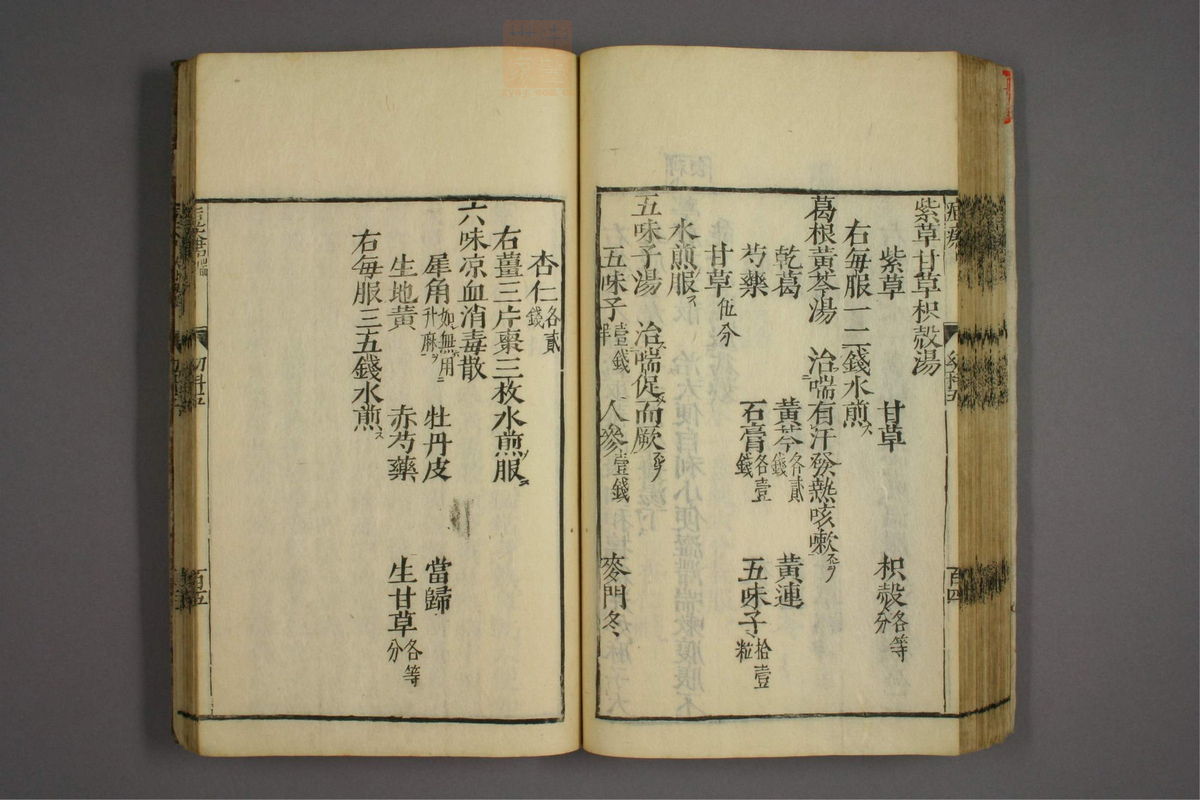 紫草甘草枳殼湯
紫草 甘草 枳殼各等分
右每服一二錢水煎ス
葛根黃芩湯 治喘有汗發熱咳嗽
乾葛 黃芩各貳錢 黃連
芍藥 石膏各壹錢 五味子拾壹粒
甘草伍分
水煎服ス
五味子湯 治喘促而厥
五味子壹錢半 人參壹錢 麥門冬
杏仁各貳錢
右薑三片棗三枚水煎服
六味凉血消毒散
犀角如無用升麻 牡丹皮 當歸
生地黃 赤芍藥 生甘草各等分
右每服三五錢水煎ス
百四
百五